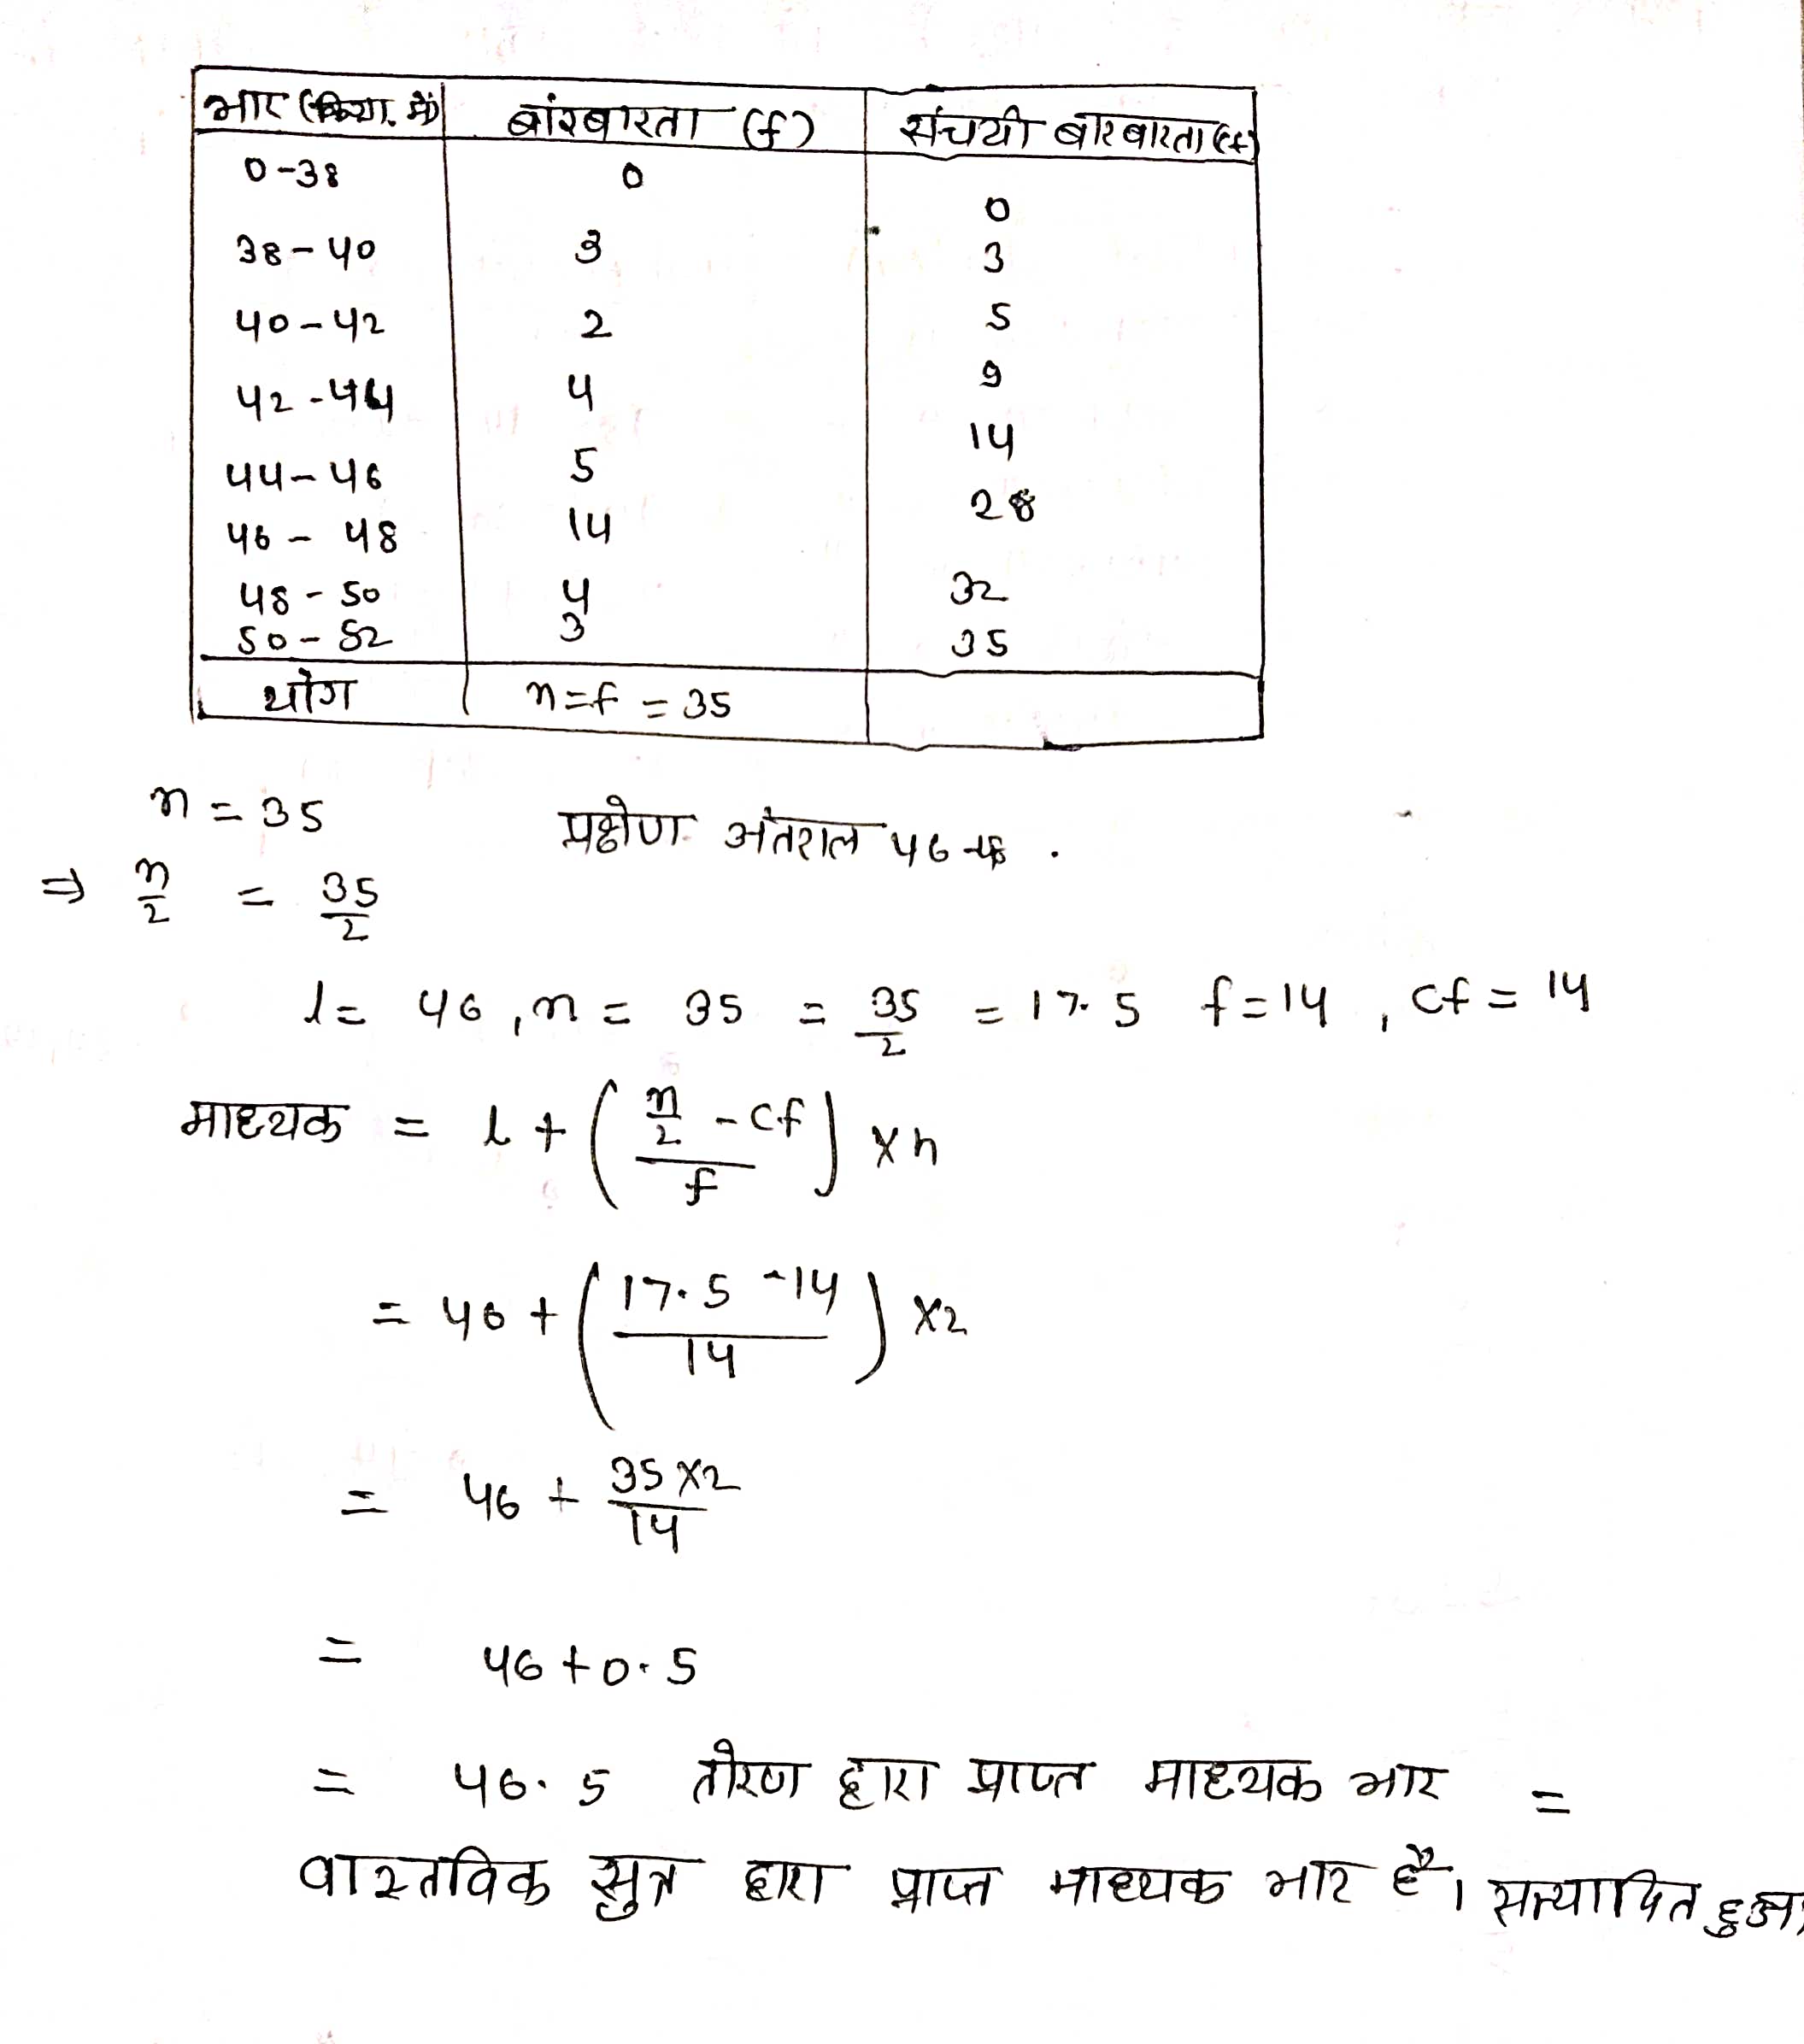 भार (किग्रा. में) बांरबारता (f) संचयी बारबारता (cf)
0-38 0 0
38-40 3 3
40-42 2 5
42-44 4 9
44-46 5 14
46-48 14 28
48-50 4 32
50-52 3 35
योग n=f=35
n=35 प्रक्षेण अंतराल 46-48.
⇒ n/2 = 35/2
l= 46, n = 35 = 35/2 = 17.5 f=14, cf=14
माध्यक = l+((n/2 -cf)/f) xh
= 46+((17.5-14)/14) x2
= 46 + 35x2/14
= 46+0.5
= 46.5 तोरण द्वारा प्राप्त माध्यक भार =
वास्तविक सुत्र द्वारा प्राप्त माध्यक भार है। सत्यापित हुआ